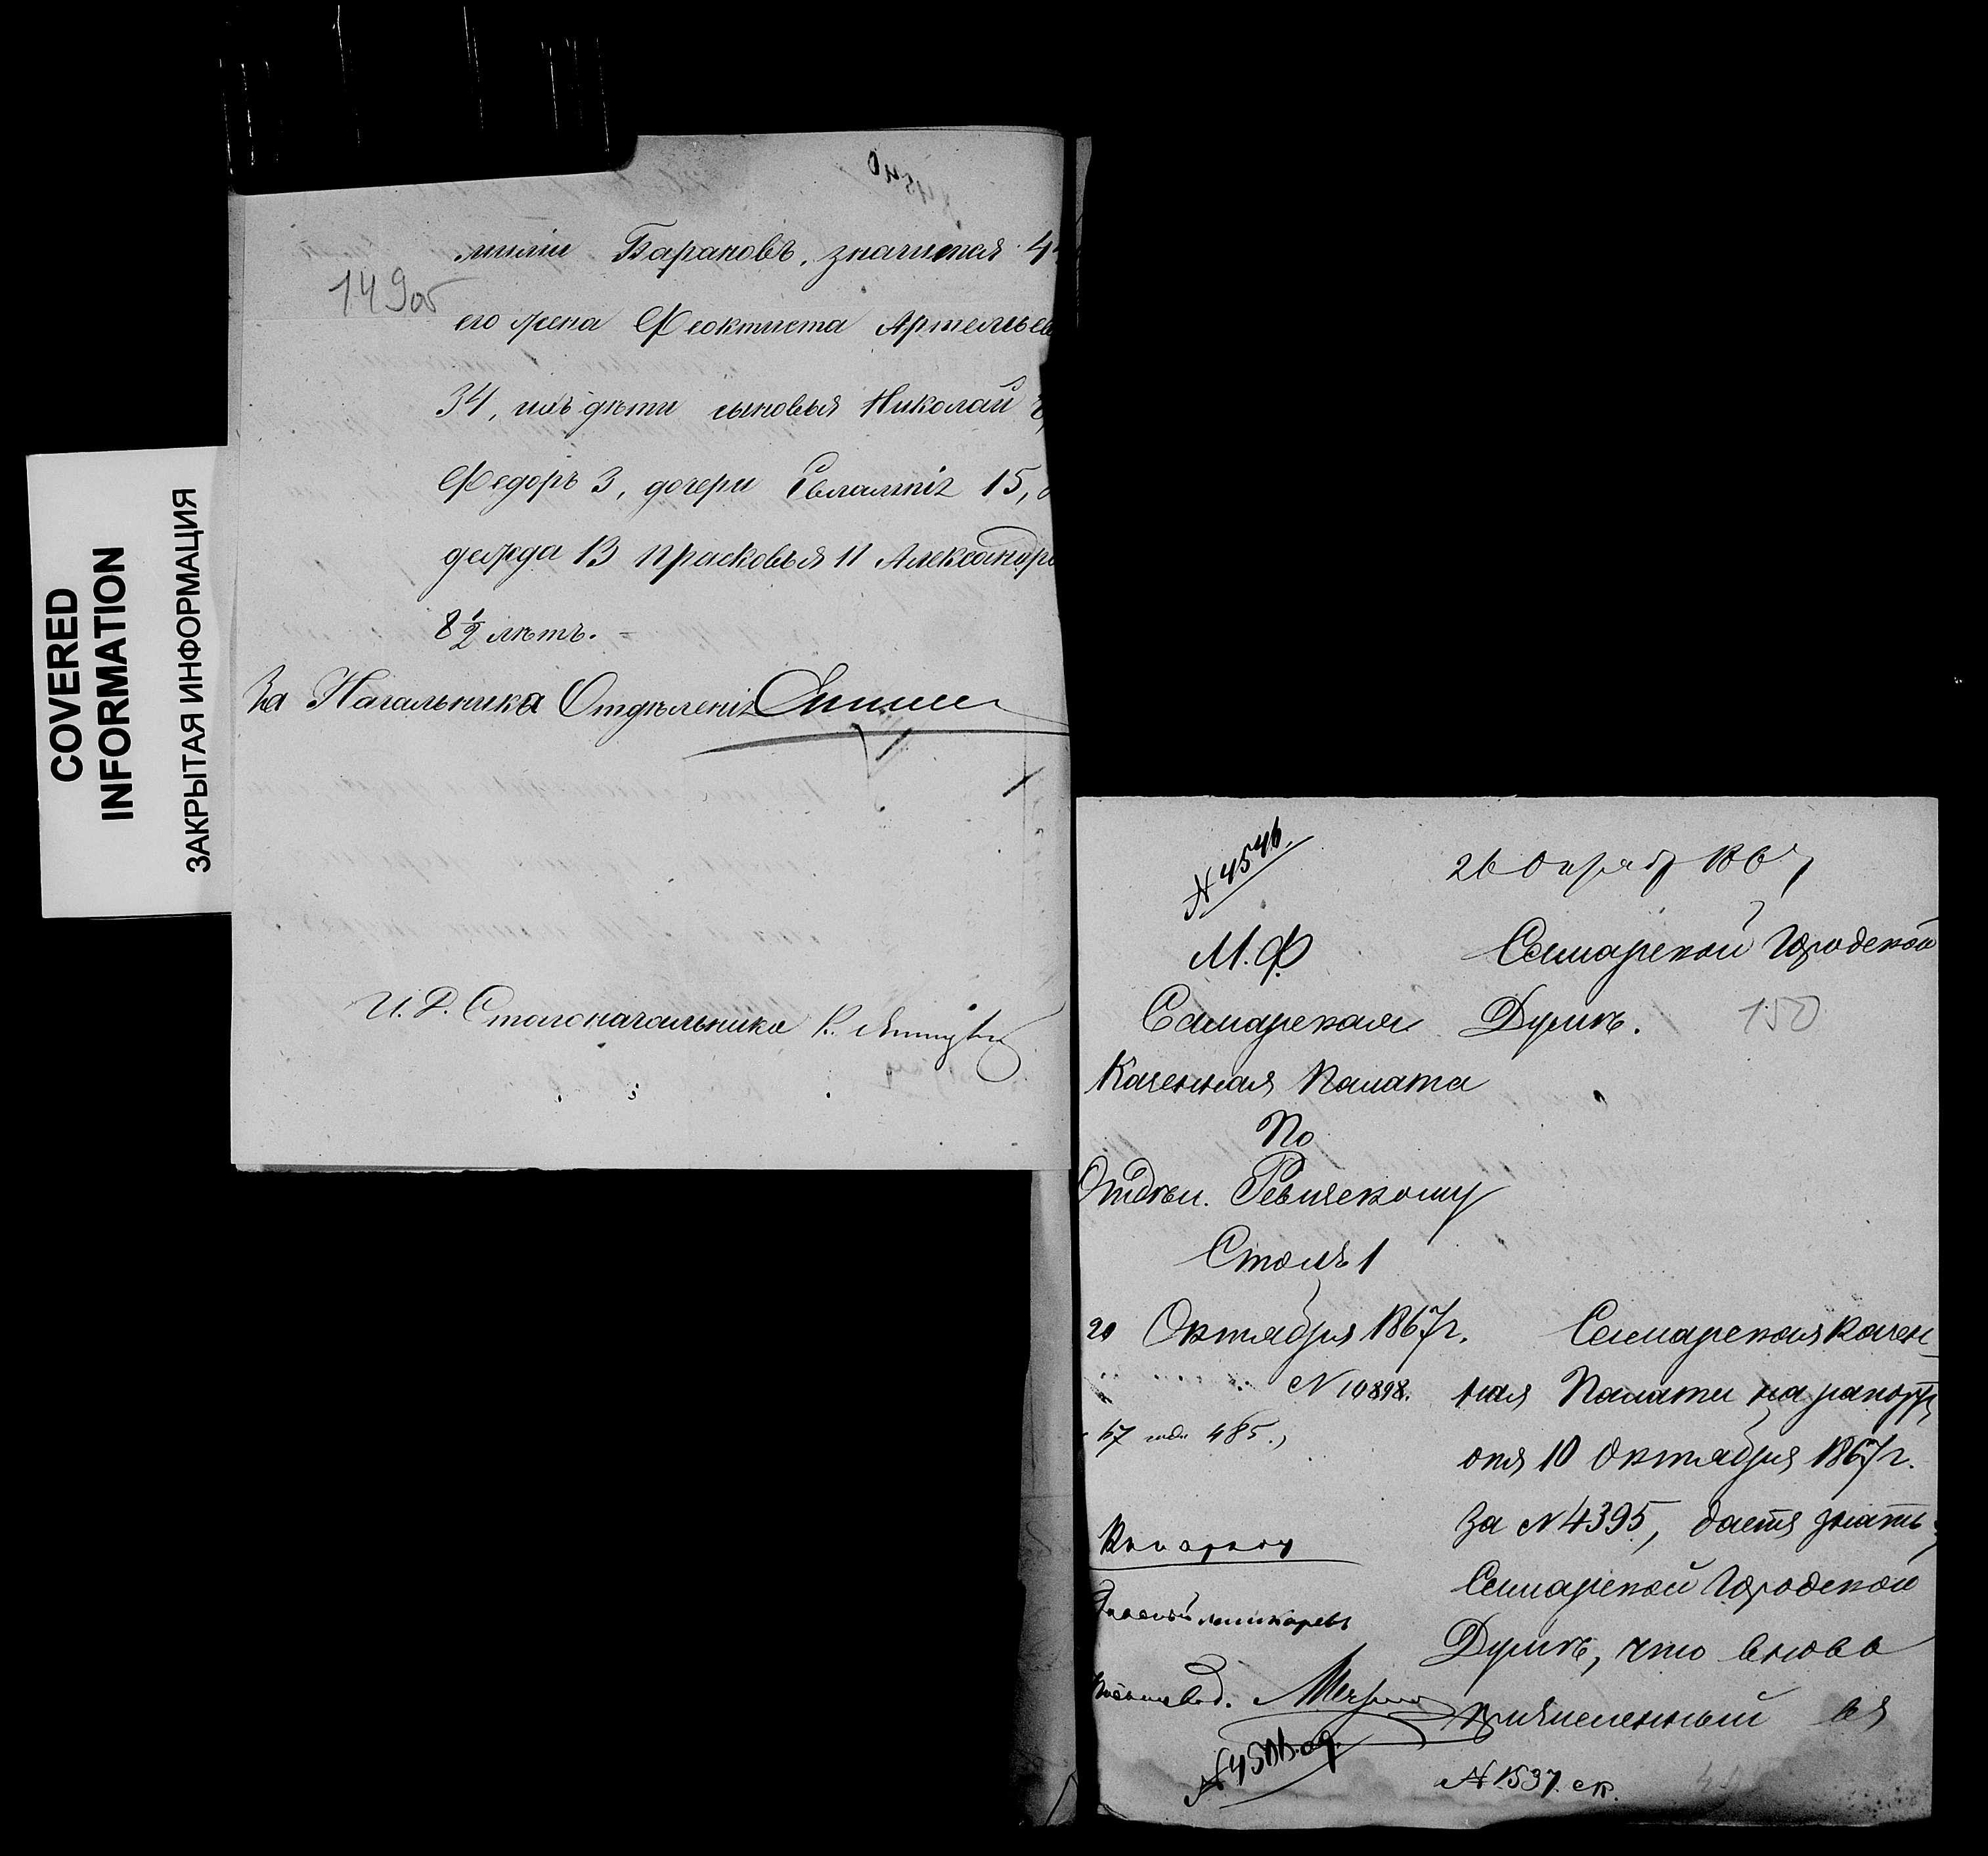 COVERED
INFORMATION
ЗАКРЫТАЯ ИНФОРМАЦИЯ
149об
миліи Барановъ, значится 4
его жена Феоктиста Артемьев
34, ихъ дѣти сыновья Николай
Федоръ 3, дочери 15,
13 Прасковья 11 Александра
8 1/2 лѣтъ.
За Начальника Отдѣленія
И. Д. Столоначальника
N 4546.
26 Октяб 1867
М. Ф.
Самарская
Казенная Палата
По
Отдѣл. Ревизскому
Столъ 1
20 Октября 1867 г.
N 10898.
67 485.
Самарской Городской
Думѣ.
150
Самарская Казен
ная Палата на рапортъ
отъ 10 Октября 1867 г.
За N 4395, даетъ знать
Самарской Городской
Думѣ, что вновь
причисленный въ
N 1537. ск.